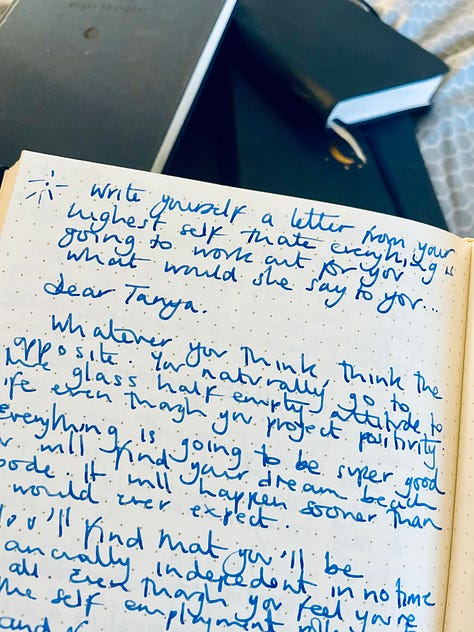 Night Thoughts
write yourself a letter from your
highest self that everything is
going to work out for you
what would she say to you...
Dear Tanya.
Whatever you think, think the
opposite. You naturally go to
the glass half empty attitude to
life even though you project positivity
everything is going to be super good
will find your dream beach
bode. It will happen sooner than
would ever expect.
You'll find that you'll be
ancially indepedent in no time
all. Even though you feel you're
the self employment
and